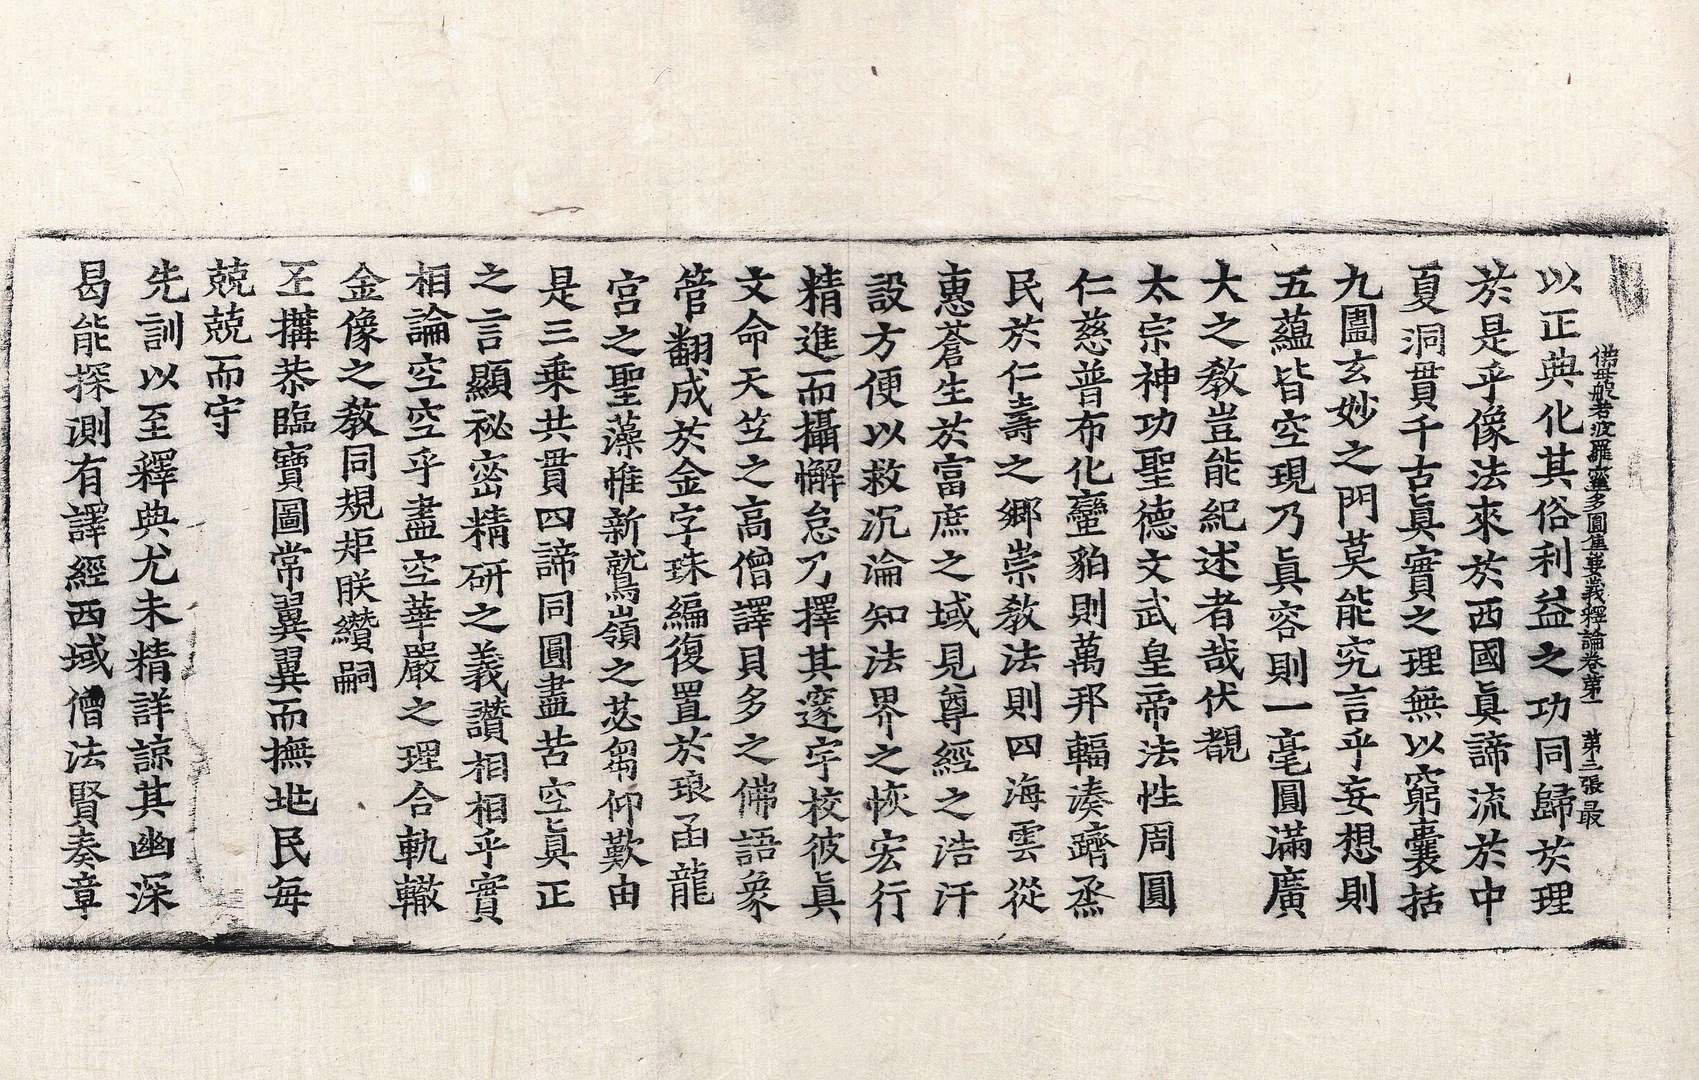 佛母般若波羅蜜多圓集要義釋論卷第一　第三張　最
以正典化其俗利益之功同歸於理
於是乎像法來於西國眞諦流於中
夏洞貫千古眞實之理無以窮囊括
九圍玄妙之門莫能究言乎妄想則
五蘊皆空現乃眞容則一毫圓滿廣
大之教豈能紀述者哉伏覩
太宗神功聖德文武皇帝法性周圓
仁慈普布化蠻貊則萬邦輻湊躋烝
民於仁壽之鄉崇教法則四海雲從
惠蒼生於富庶之域見尊經之浩汗
設方便以救沉淪知法界之恢宏行
精進而攝懈怠乃擇其邃宇校彼眞
文命天竺之高僧譯貝多之佛語象
管翻成於金字珠編復置於琅函龍
宮之聖藻惟新鷲嶺之苾蒭仰歎由
是三乘共貫四諦同圓盡苦空眞正
之言顯祕密精研之義讚相相乎實
相論空空乎盡空華嚴之理合軌轍
金像之教同規矩朕纘嗣
丕搆恭臨寶圖常翼翼而撫兆民每
兢兢而守
先訓以至釋典尤未精詳諒其幽深
曷能探測有譯經西域僧法賢奏章